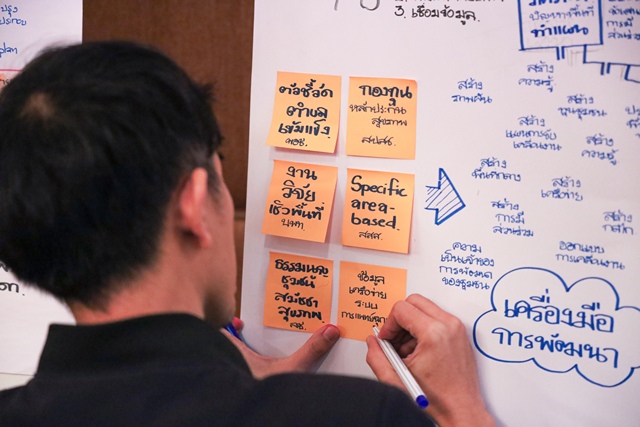 3. เชื่อมข้อมูล.
ทำแผน
ตัวชี้วัด
ตำบล
เข้มแข็ง.
พอช.
กองทุน
หลักประกัน
สุขภาพ
สปสช.
งาน
วิจัย
เชิงพื้นที่
บพท.
Specific
area-
based.
สสส.
ธรรมนูญ
ชุมชน
สมัชชา
สุขภาพ
สช.
ข้อมูล
เครือข่าย
ระบบ
สร้าง
ความรู้
สร้าง
สร้าง
สร้าง
สร้าง
ความรู้
สร้าง
พื้นที่กลาง
สร้าง
เครือข่าย
สร้าง
การมี
ส่วนร่วม
สร้าง
กลไก
ความ
เป็นเจ้าของ
ของชุมชน
ออกแบบ
เครื่องมือ
การพัฒนา